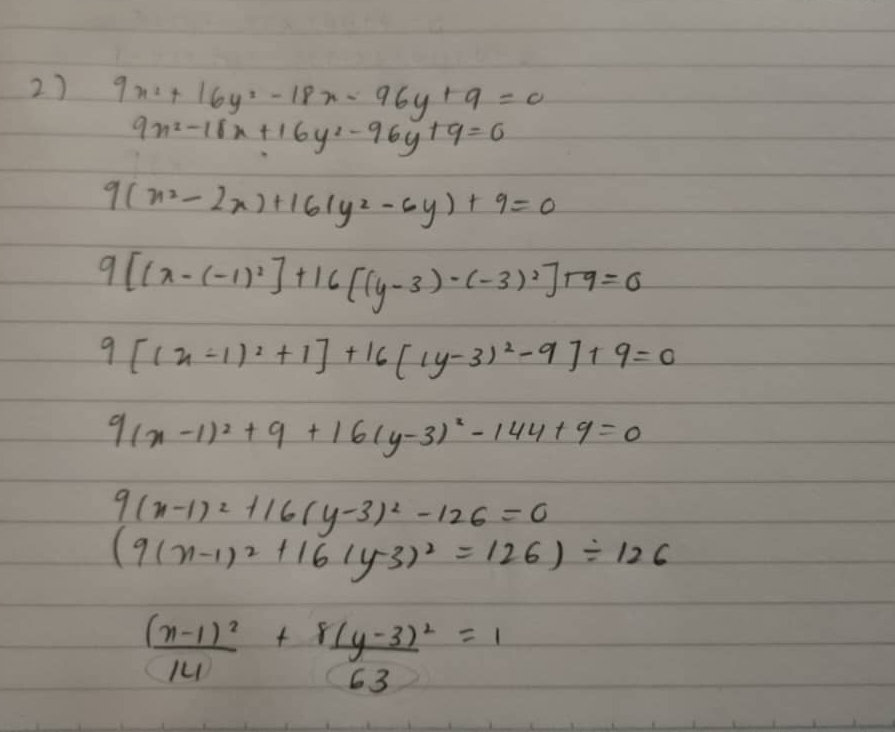 2) 9x² + 16y² - 18x - 96y + 9 = 0
9x² - 18x + 16y² - 96y + 9 = 0
9(x² - 2x) + 16(y² - 6y) + 9 = 0
9[(x - (-1)²] + 16[(y-3) - (-3)²] + 9 = 0
9[(x-1)² + 1] + 16[(y-3)² - 9] + 9 = 0
9(x-1)² + 9 + 16(y-3)² - 144 + 9 = 0
9(x-1)² + 16(y-3)² - 126 = 0
(9(x-1)² + 16(y-3)² = 126) ÷ 126
(x-1)²/14 + 8(y-3)²/63 = 1